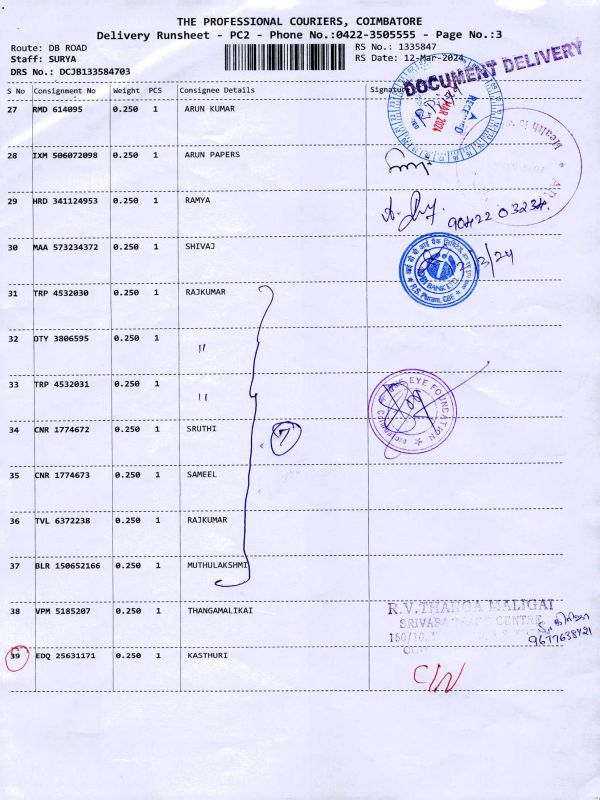 THE PROFESSIONAL COURIERS, COIMBATORE
Delivery Runsheet - PC2 - Phone No.:0422-3505555 - Page No.:3
Route: DB ROAD
RS No.: 1335847
Staff: SURYA
RS Date: 12-Mar-2024
DRS No.: DCJB133584703
DOCUMENT DELIVERY
S No Consignment No Weight PCS Consignee Details Signatur
RECEIVED
MAR 2024
27 RMD 614095 0.250 1 ARUN KUMAR
Health is w
28 IXM 506072098 0.250 1 ARUN PAPERS
29 HRD 341124953 0.250 1 RAMYA
90422 03234
30 MAA 573234372 0.250 1 SHIVAJ
/3/24
IDBI BANK LTD.
R.S. Puram, CBE
31 TRP 4532030 0.250 1 RAJKUMAR
32 OTY 3806595 0.250 1 "
33 TRP 4532031 0.250 1 "
EYE FOUNDATION
34 CNR 1774672 0.250 1 SRUTHI
7
35 CNR 1774673 0.250 1 SAMEEL
36 TVL 6372238 0.250 1 RAJKUMAR
37 BLR 150652166 0.250 1 MUTHULAKSHMI
38 VPM 5185207 0.250 1 THANGAMALIKAI
R.V.THANGA MALIGAI
CENTRE
9677638421
39 EDQ 25631171 0.250 1 KASTHURI
C/N